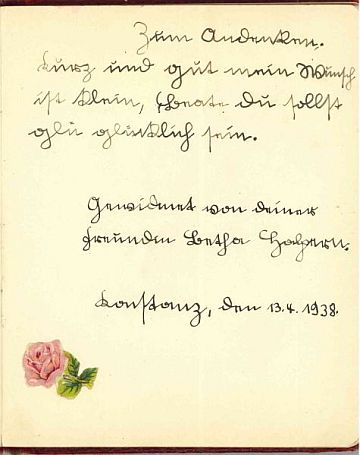 Zum Andenken.
Kurz und gut mein Wunsch
ist klein, Beate du sollst
glü glücklich sein.
Gewidmet von deiner
Freundin Betha Halpern.
Konstanz, den 13.4.1938.